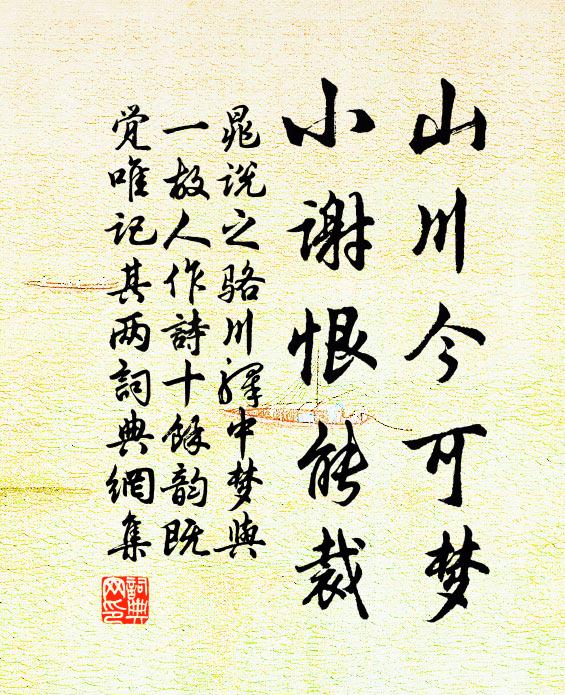 山川今可梦
小谢恨能裁
晁说之骆川驿中梦与
一故人作詩十餘韵既
觉唯记其两詞典網集
詞典
网印